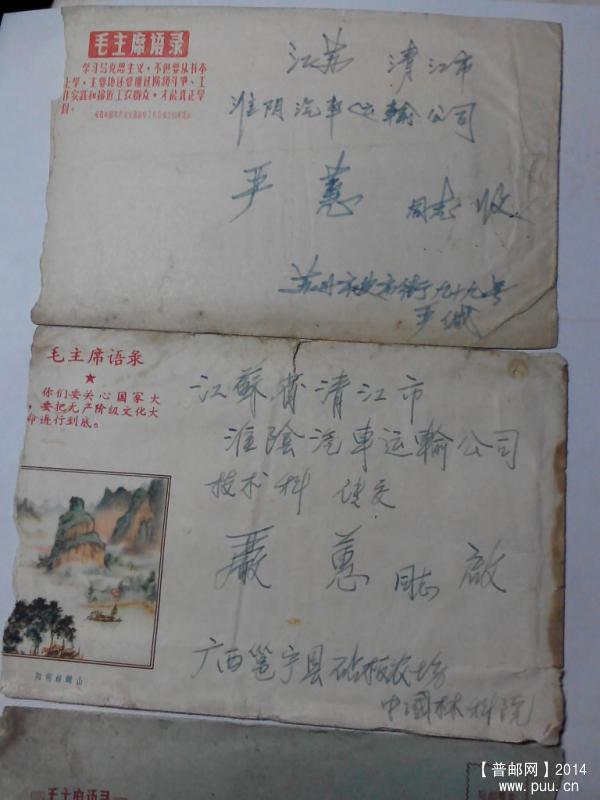 毛主席语录
学习马克思主义，不但要从书本
上学，主要地还要通过阶级斗争、工
作实践和接近工农群众，才能真正学
到。
江苏 清江市
淮阴汽车运输公司
严 蕙 同志 收
苏州 街九十九号
严 缄
毛主席语录
★
你们要关心国家大
，要把无产阶级文化大
命进行到底。
阳朔 山
江蘇省清江市
淮陰汽車运輸公司
技术科 请交
嚴 蕙 同志 啟
广西邕宁县砧板农场
中國林科院
毛主席语录
【普邮网】2014
www.puu.cn